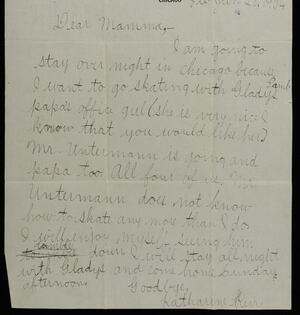 CHICAGO
Dear Mamma,-
I am going to
stay over night in Chicago because
I want to go skating with Gladys Lamb
papa's office girl (she is very nice I
know that you would like her)
Mr. Untermann is going and
papa too. All four of us. Mr.
Untermann does not know
how to skate any more than I do.
I will enjoy myself seeing him
tumble
down I will stay all night
with Gladys and come home Sunday
afternoon. Goodbye,
Katharine